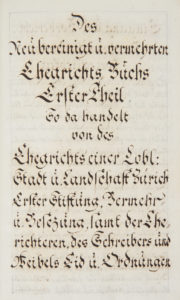 Des
Neü vereinigt ů. vermehrten
Ehegrichts Bůchs
Erster Theil
So da handelt
von des
Ehegrichts einer Lobl:
Stadt ů Landschafft Zürich
Erster Stifftůng, Vermehr
ů Besezůng, samt der Ehe
richteren, des Schreibers ůnd
Weibels Eid ů. Ordnůngen